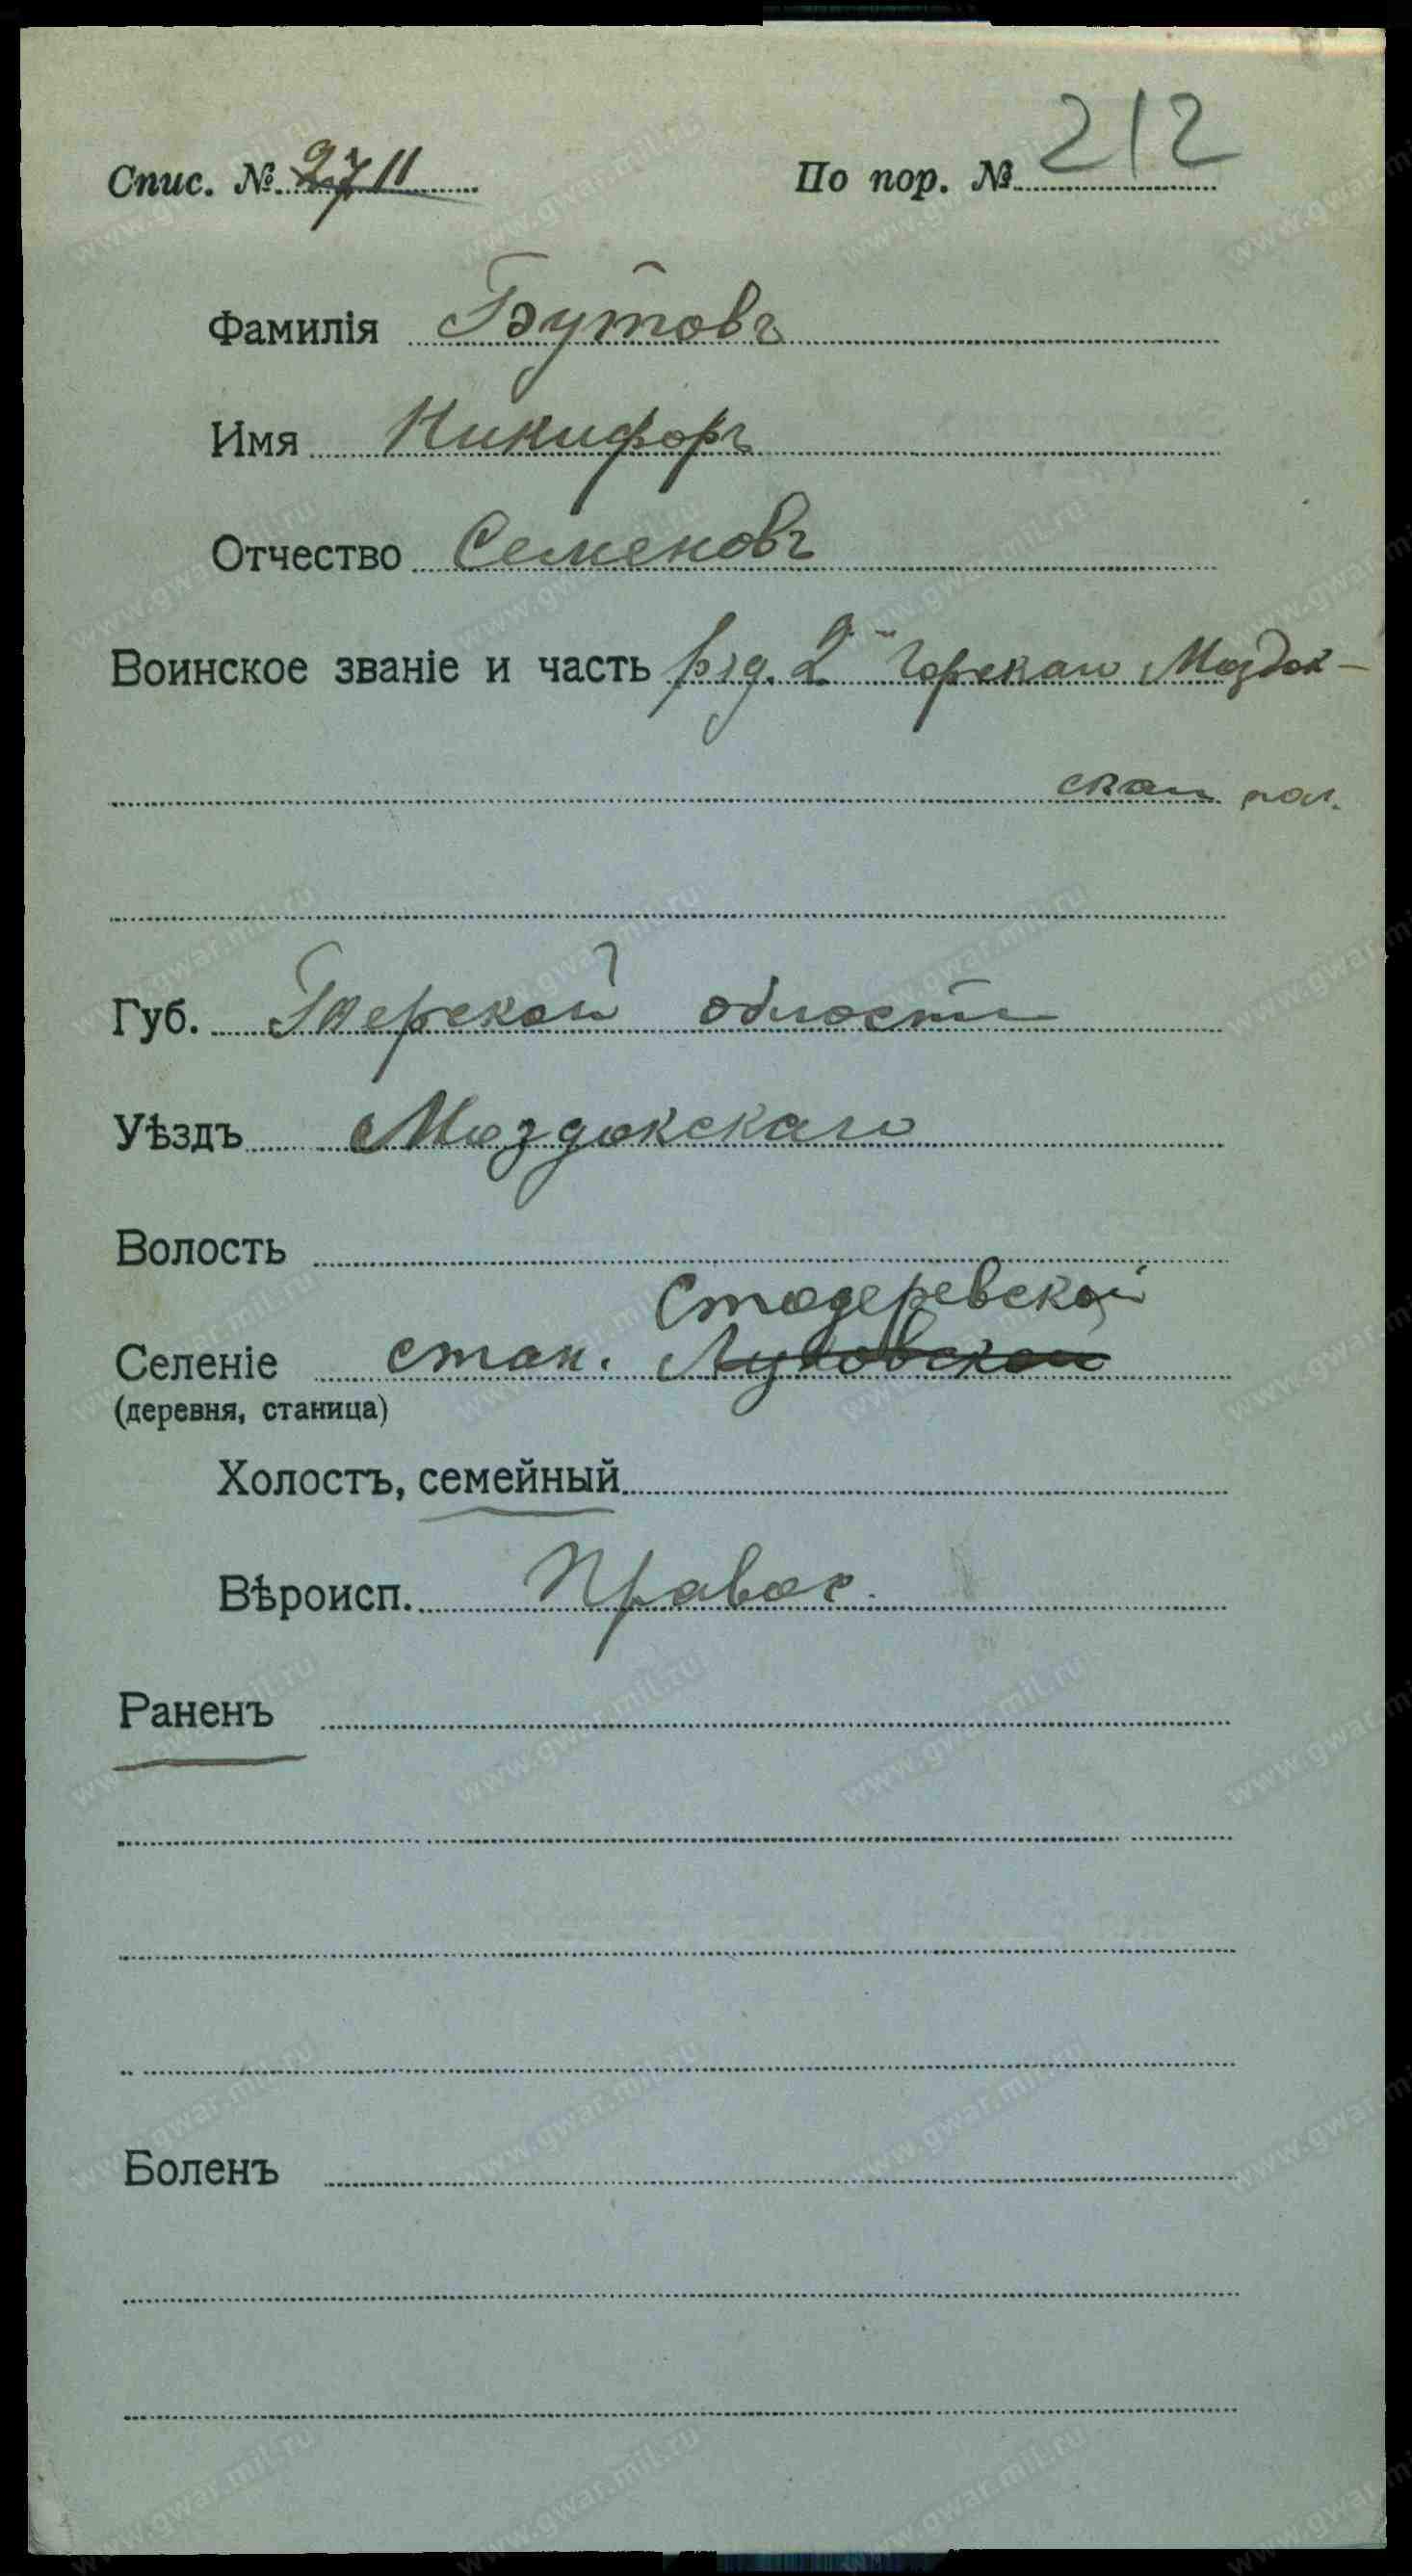 Спис. № 2711 По пор. № 212
Фамилія Бутовъ
Имя Никифоръ
Отчество Семеновъ
Воинское званіе и часть ряд. 2 Горскаго Моздок-
скаго пол.
Губ. Терской области
Уѣздъ Моздокскаго
Волость
Стодеревской
Селеніе стан. Луковской
(деревня, станица)
Холостъ, семейный
Вѣроисп. Правос.
Раненъ
Боленъ